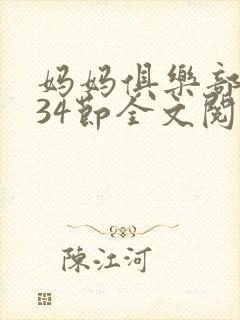 妈妈俱樂部
34節全文閱
陳江河